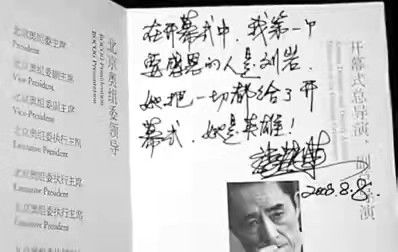 北京奥组委领导
BOCOG
北京奥组委主席
President
北京奥组委副主席
Vice-President
北京奥组委副主席
Vice-President
北京奥组委执行主席
Executive President
北京奥组委执行主席
Executive President
北京奥组委执行主席
Executive President
在开幕式中，我第一个
要感恩的人是刘岩。
她把一切都给了开
幕式，她是英雄！
张艺谋
2008.8.8.
开幕式总导演、副总导演